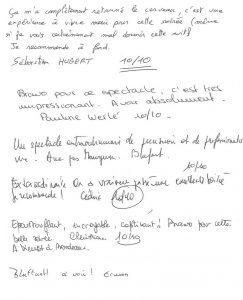 Ça m'a complètement retourné le cerveau, c'est une
expérience à vivre merci pour cette soirée (même
si je vais certainement mal dormir cette nuit)
Je recommande à fond.
Sébastien HUBERT 10/10
Bravo pour ce spectacle, c'est très
impressionnant. A voir absolument.
Pauline 10/10
Un spectacle extraordinaire de precision et de professionnalis
me. Bluffant.
10/10
Extraordinaire On a vraiment
je recommande! Cédric 10/10
Epoustouflant, incroyable, captivant! Bravo pour cette
belle soirée. Christian 10/10
A bientôt à Bordeaux.
Bluffant! à voir!